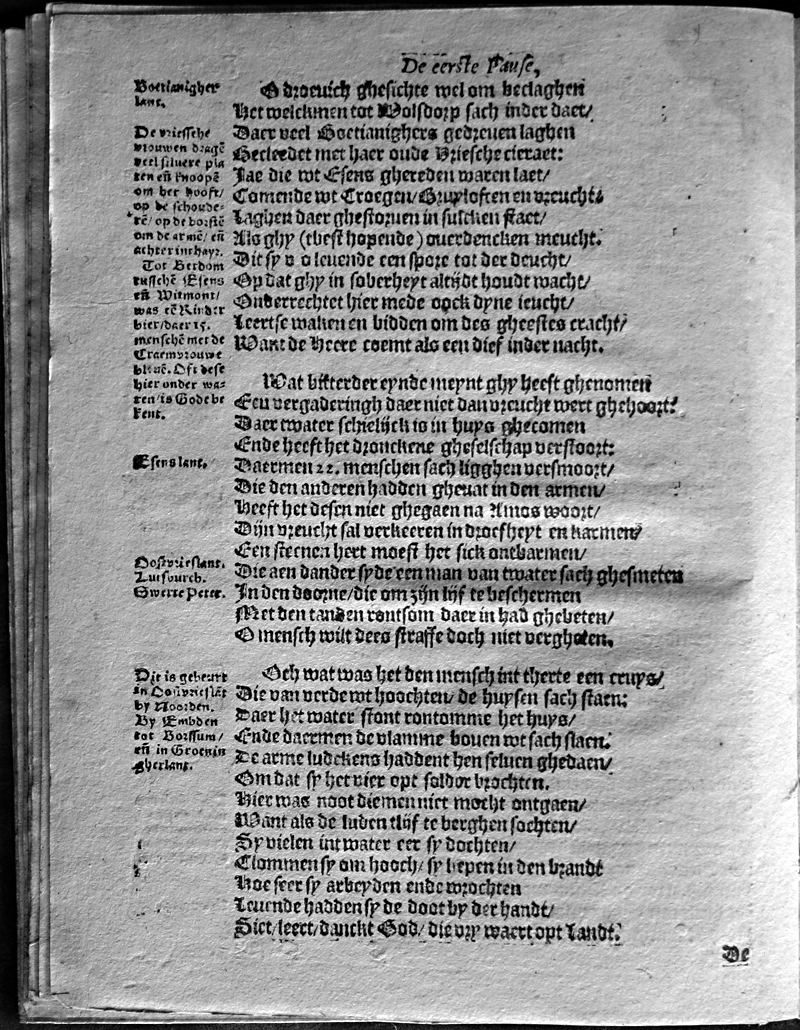 De eerste Pause,
Boetianigher
lant.
De vriessche
vrouwen dragē
veel siluere pla
ten eñ knoopē
om her hooft/
op de schoude-
rē/ op de borstē
om de armē/ eñ
achter int hayr.
Tot Berdom
tusschē Esens
eñ Witmont/
was eē Kinder
bier/daer 15.
menschē met de
Craemvrouwe
blieuē. Oft dese
hier onder wa-
ren/is Gode be
kent.
Esens lant.
Oostvrieslant.
Lutsburch.
Swerte Peter.
Dit is gebeurt
in Oostvrieslāt
by Noorden.
By Embden
tot Borssum/
eñ in Groenin
gherlant.
O droeuich ghesichte wel om beclaghen
Het welckmen tot Wolsdorp sach inder daet/
Daer veel Boetianighers gedreuen laghen
Gecleedet met haer oude Vriesche cieraet:
Jae die wt Esens ghereden waren laet/
Comende wt Croegen/Gruyloften en vreucht/
Laghen daer ghestoruen in sulcken staet/
Als ghy (tbest hopende) ouerdencken meucht.
Dit sy v o leuende een spore tot der deucht/
Op dat ghy in soberheyt altijdt houdt wacht/
Onderrechtet hier mede oock dyne ieucht/
Leertse waken en bidden om des gheestes cracht/
Want de Heere coemt als een dief inder nacht.
Wat bitterder eynde meynt ghy heeft ghenomen
Een vergaderingh daer niet dan vreucht wert ghehoort?
Daer twater schielijck is in huys ghecomen
Ende heeft het dronckene gheselschap verstoort:
Daermen 22. menschen sach ligghen versmoort/
Die den anderen hadden gheuat in den armen/
Heeft het desen niet ghegaen na Amos woort/
Dijn vreucht sal verkeeren in droefheyt en karmen?
Een steenen hert moest het sick ontbarmen/
Die aen dander syde een man van twater sach ghesmeten
In den doorne/die om zijn lijf te beschermen
Met den tanden rontsom daer in had ghebeten/
O mensch wilt dees straffe doch niet vergheten.
Och wat was het den mensch int therte een cruys/
Die van verde wt hoochten/ de huysen sach staen:
Daer het water stont rontomme het huys/
Ende daermen de vlamme bouen wt sach slaen.
De arme ludekens haddent hen seluen ghedaen/
Om dat sy het vier opt solder brochten.
Hier was noot diemen niet mocht ontgaen/
Want als de luden tlijf te berghen sochten/
Sy vielen int water eer sy dochten/
Clommen sy om hooch/ sy liepen in den brandt
Hoe seer sy arbeyden ende wrochten
Leuende hadden sy de doot by der handt/
Siet/leert/danckt God/ die vry waert opt Landt.
De